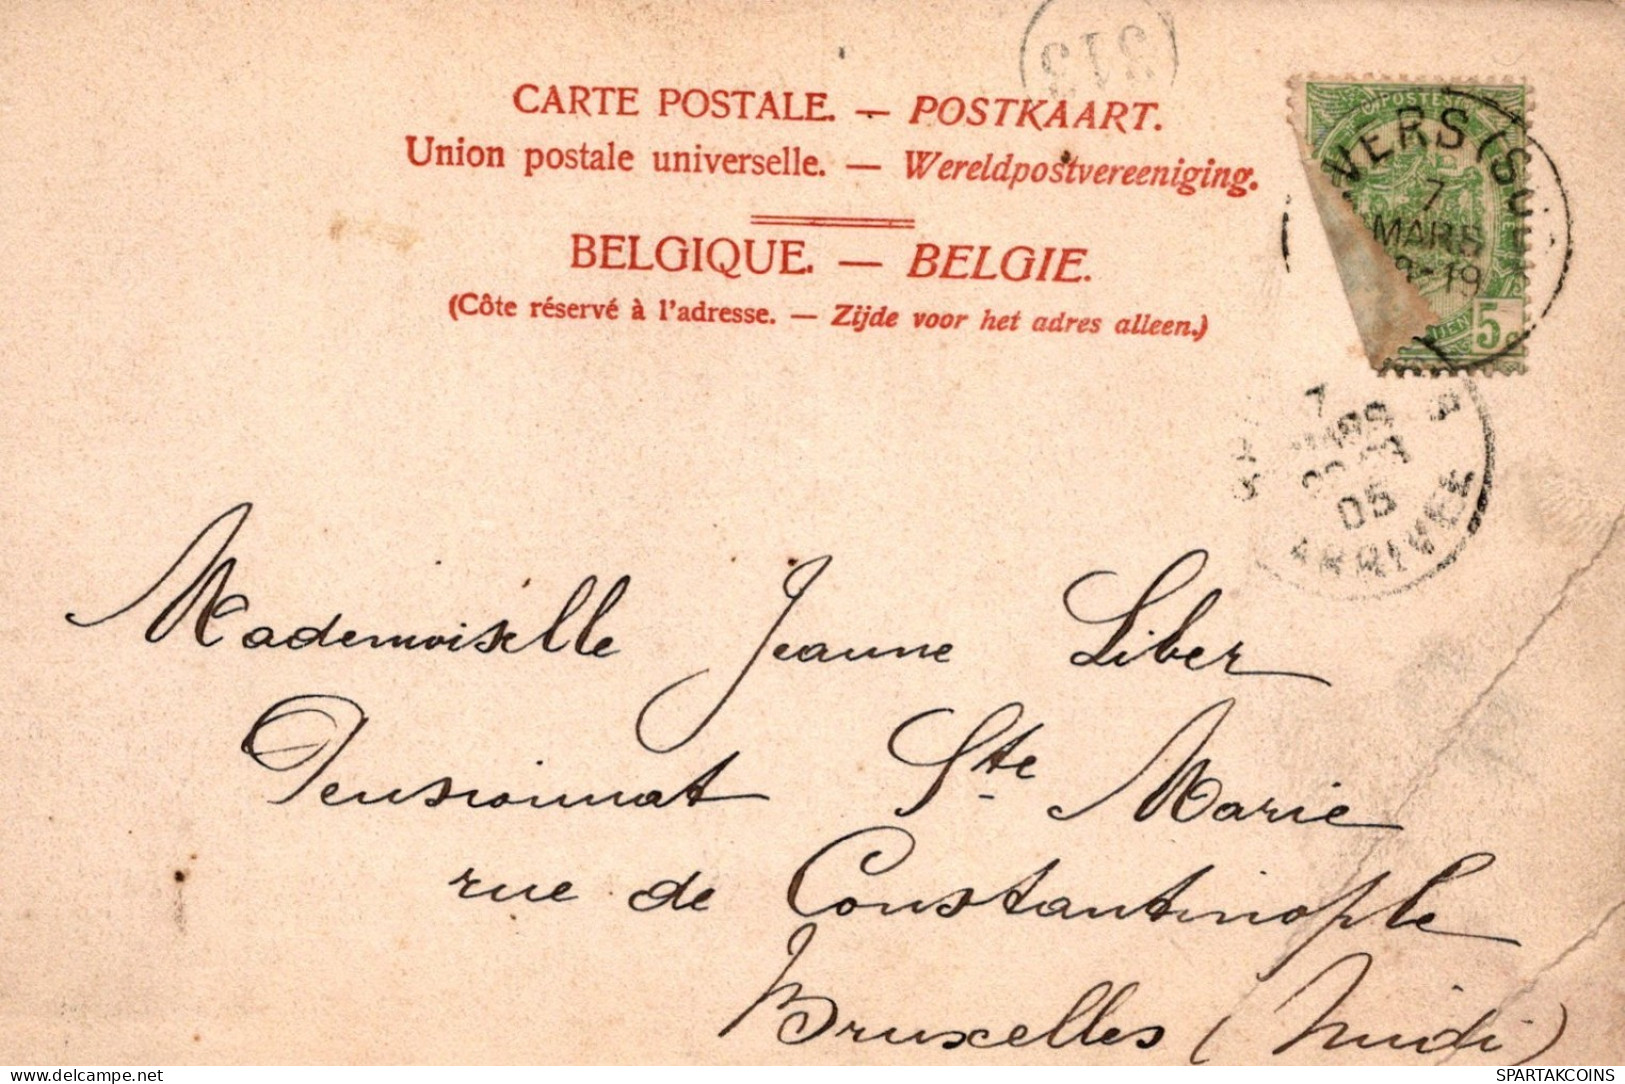 313
CARTE POSTALE. — POSTKAART.
Union postale universelle. — Wereldpostvereeniging.
BELGIQUE. — BELGIE.
(Côte réservé à l'adresse. — Zijde voor het adres alleen.)
POSTE
VERS (SUD
7
MARS
-19
5
7
05
ARRIVEE
Mademoiselle Jeanne Liber
Pensionnat Ste Marie
rue de Constantinople
Bruxelles (Midi)
delcampe.net
SPARTAKCOINS